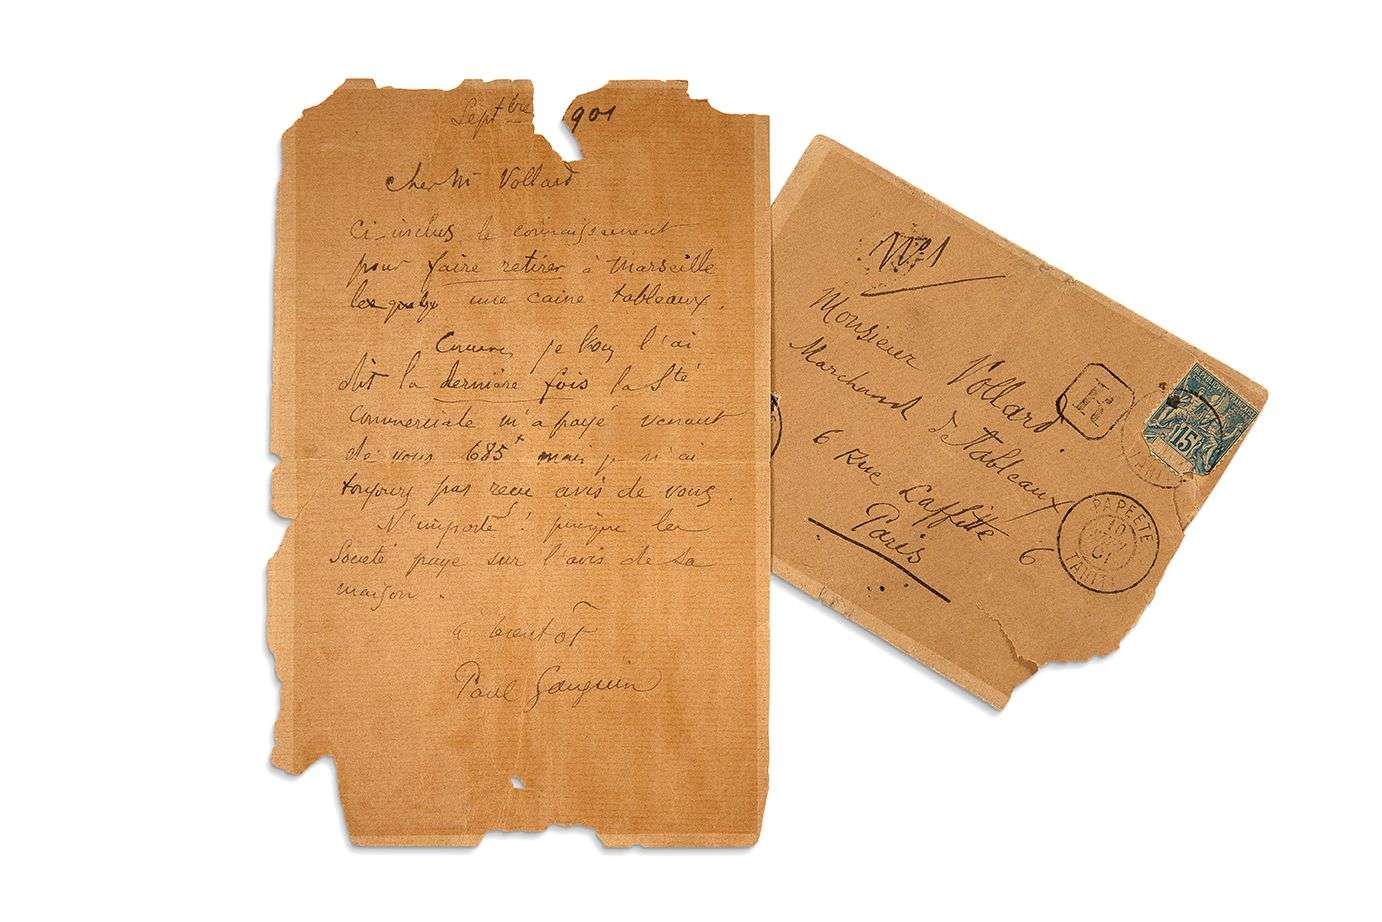 Sept.bre 1901
Cher Mr Vollard
Ci-inclus le connaissement
pour faire retirer à Marseille
une caisse tableaux.
Comme je vous l'ai
dit la dernière fois la Sté
Commerciale m'a payé venant
de vous 685f mais je n'ai
toujours pas reçu avis de vous.
N'importe! puisque la
Société paye sur l'avis de sa
maison.
à bientôt
Paul Gauguin
N°1
Monsieur Vollard
Marchand de Tableaux
6 Rue Laffitte 6
Paris
R
15
PAPEETE
10
01
TAHITI